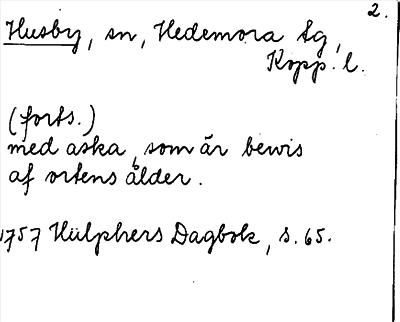 2.
Husby, sn, Hedemora tg,
Kopp. l.
(forts.)
med aska, som är bewis
af ortens ålder.
1757 Hülphers Dagbok, s. 65.